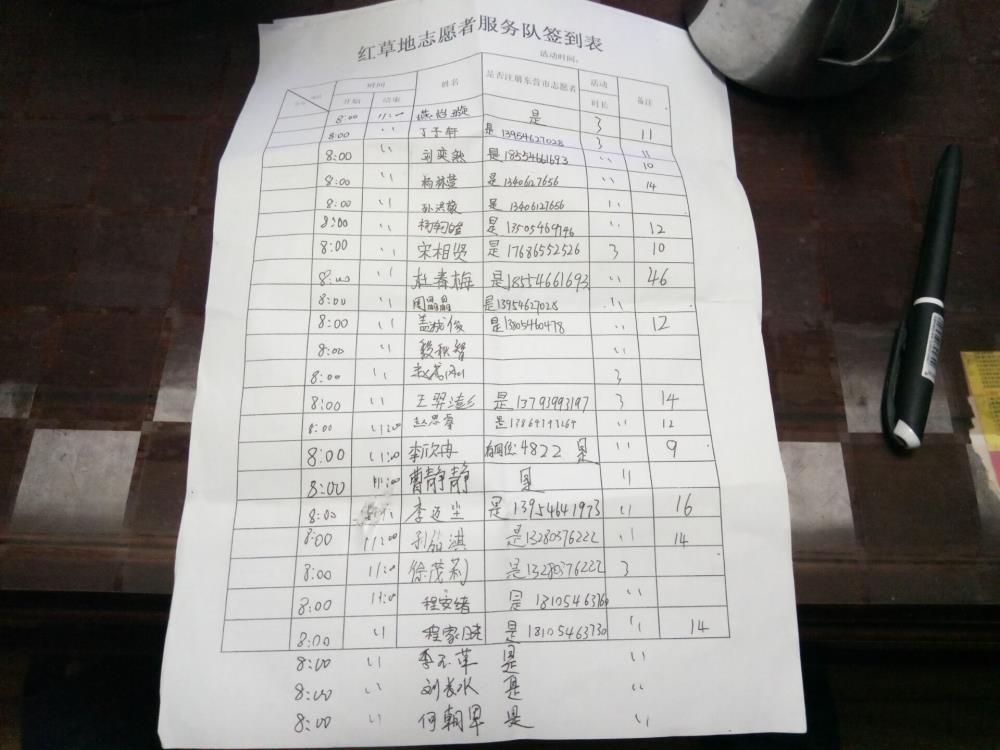 红草地志愿者服务队签到表
活动时间:
时间 姓名 是否注册东营市志愿者 活动 备注
开始 结束 时长
8:00 11:00 燕怡璇 是 3 11
8:00 〃 丁子轩 是 13954627028 3 11
8:00 〃 刘奕然 是 18554661693 〃 10
8:00 〃 杨林萱 是 1340627656 〃 14
8:00 〃 孙洪敏 是 13406127656 〃
8:00 〃 是 13505469746 〃 12
8:00 〃 宋相贤 是 17686552526 3 10
8:00 〃 杜春梅 是 18554661693 〃 46
8:00 〃 周晶晶 是 13954627028 〃
8:00 〃 盖斌俊 是 13805460478 〃 12
8:00 〃 〃
8:00 〃 3
8:00 〃 王羿澎 是 13793993197 3 14
8:00 11:00 赵思睿 是 〃 12
8:00 11:00 李欣冉 4822 是 〃 9
8:00 11:00 曹静静 是 〃
8:00 李 是 13954641973 〃 16
8:00 11:00 是 13280376222 〃 14
8:00 11:00 徐茂莉 是 13280376222 3
8:00 11:00 程安绪 是 18105463760 〃
8:00 〃 程家 是 18105463730 〃 14
8:00 〃 李玉革 是 〃
8:00 〃 刘长水 是 〃
8:00 〃 何朝军 是 〃